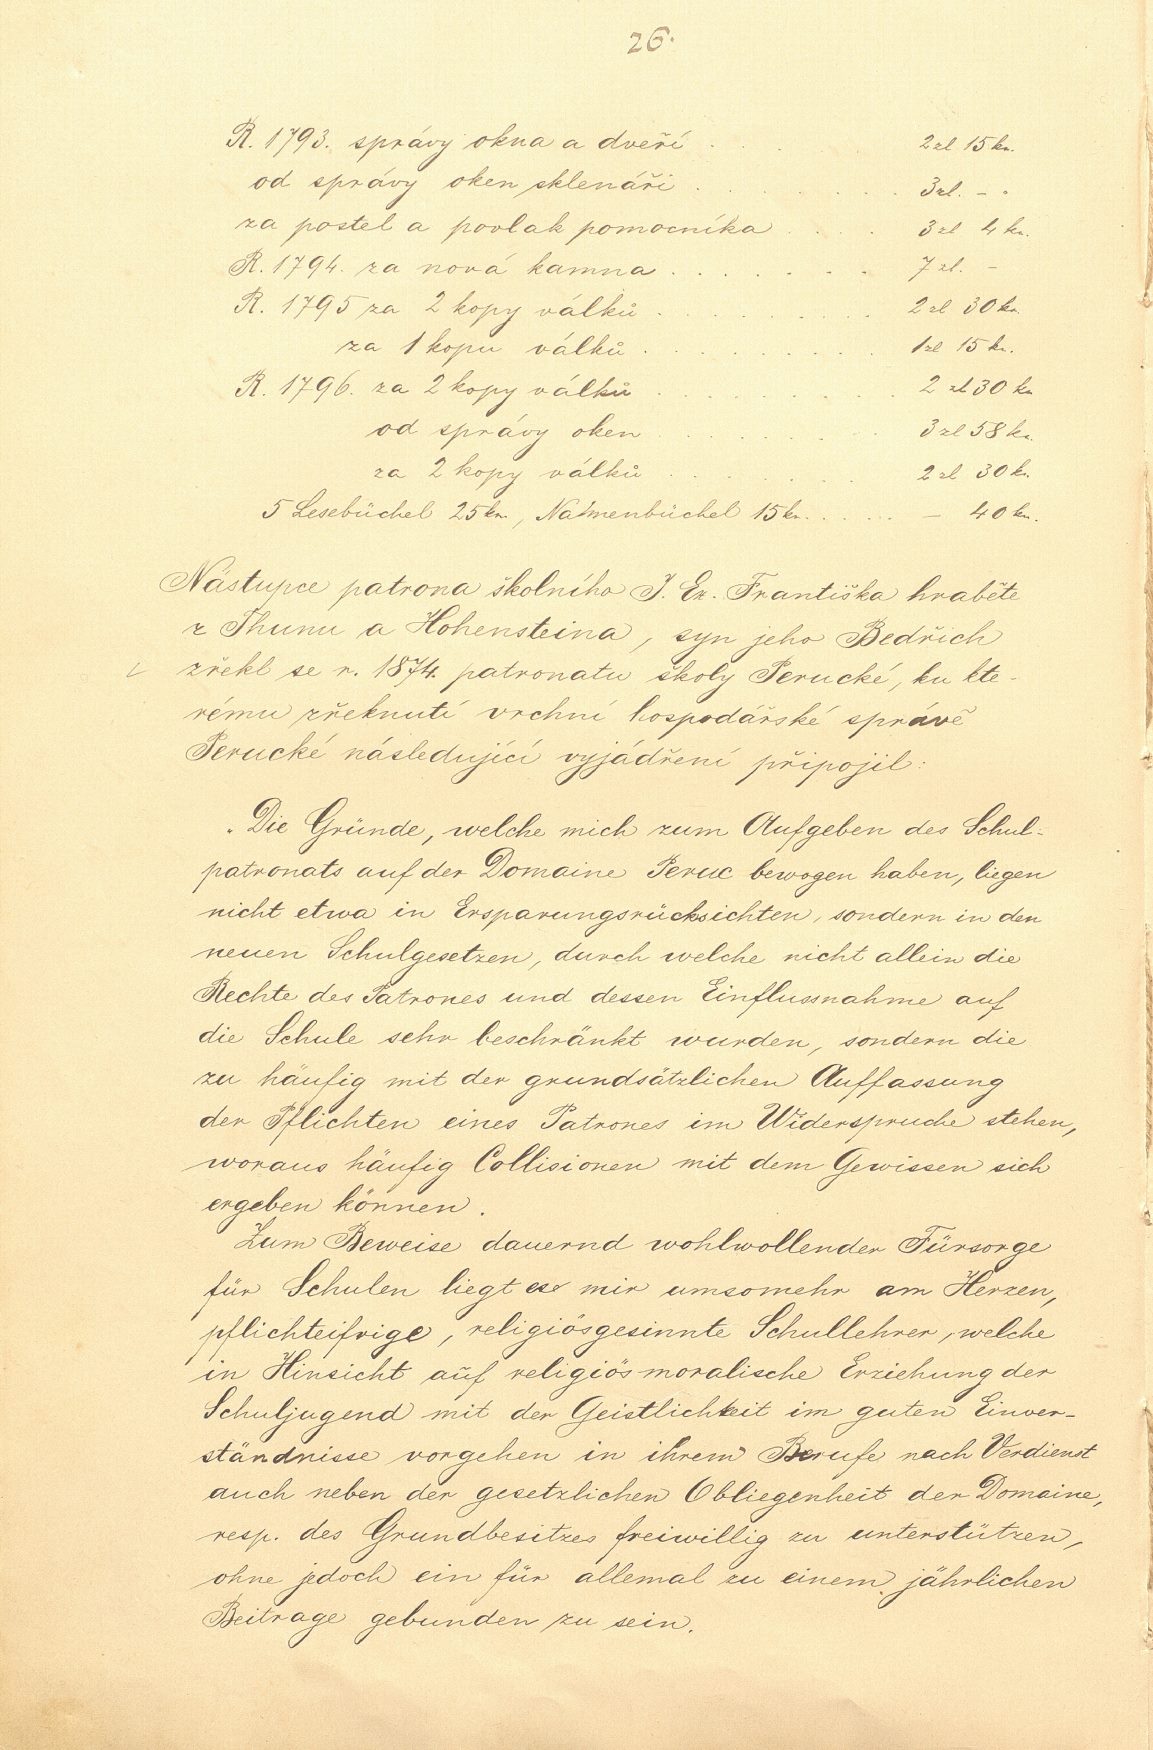 26.
R. 1793. správy okna a dveří . . . 2 zl 15 kr.
od správy oken skenáři . . . . . . 3 zl. – .
za postel a povlak pomocníka . . . . 3 zl 4 kr.
R. 1794. za nová kamna . . . . . . 7 zl. –
R. 1795 za 2 kopy válků . . . . . . . 2 zl 30 kr.
za 1 kopu válků . . . . . . . 1 zl 15 kr.
R. 1796. za 2 kopy válků . . . . . . . 2 zl 30 kr
od správy oken . . . . . . 3 zl 58 kr.
za 2 kopy válků . . . . . 2 zl 30 kr.
5 Lesebüchel 25 kr., Namenbüchel 15 kr. . . . . . – 40 kr.
Nástupce patrona školního J. Ex. Františka hraběte
z Thunu a Hohensteina, syn jeho Bedřich
zřekl se r. 1874. patronatu školy Perucké, ku kte-
rému zřeknutí vrchní hospodářské správě
Perucké následující vyjádření připojil:
„Die Gründe, welche mich zum Aufgeben des Schul-
patronats auf der Domaine Peruc bewogen haben, liegen
nicht etwa in Ersparungsrücksichten, sondern in den
neuen Schulgesetzen, durch welche nicht allein die
Rechte des Patrones und dessen Einflussnahme auf
die Schule sehr beschränkt wurden, sondern die
zu häufig mit der grundsätzlichen Auffassung
der Pflichten eines Patrones im Widerspruche stehen,
woraus häufig Collisionen mit dem Gewissen sich
ergeben können.
Zum Beweise dauernd wohlwollender Fürsorge
für Schulen liegt es mir umsomehr am Herzen,
pflichteifrige, religiösgesinnte Schullehrer, welche
in Hinsicht auf religiös moralische Erziehung der
Schuljugend mit der Geistlichkeit im guten Einver-
ständnisse vorgehen in ihrem Berufe nach Verdienst
auch neben der gesetzlichen Obliegenheit der Domaine,
resp. des Grundbesitzes freiwillig zu unterstützen,
ohne jedoch ein für allemal zu einem jährlichen
Beitrage gebunden zu sein.